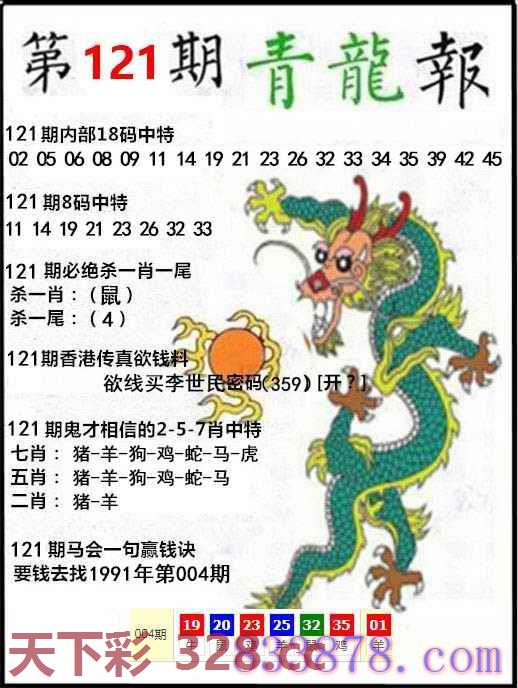 第121期 青龍報
121期内部18码中特
02 05 06 08 09 11 14 19 21 23 26 32 33 34 35 39 42 45
121期8码中特
11 14 19 21 23 26 32 33
121期必绝杀一肖一尾
杀一肖：(鼠)
杀一尾：(4)
121期香港传真欲钱料
欲线买李世民密码(359)[开？]
121期鬼才相信的2-5-7肖中特
七肖：猪-羊-狗-鸡-蛇-马-虎
五肖：猪-羊-狗-鸡-蛇-马
二肖：猪-羊
121期马会一句赢钱诀
要钱去找1991年第004期
004期 19 20 23 25 32 35 01
牛 鸡 鼠 鸡 羊
天下彩
328333878.com